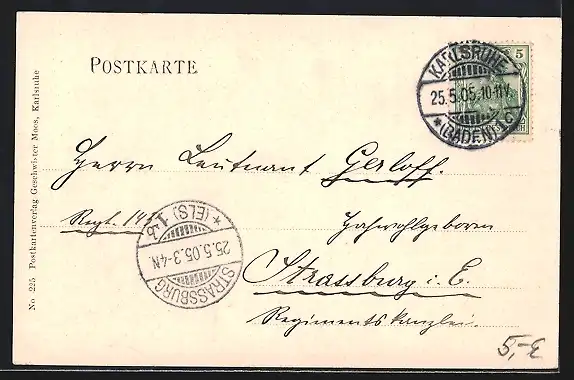 POSTKARTE
5
KARLSRUHE
25.5.05.10-11V.
*(BADEN)1C
Herrn Leutnant Gerloff.
Regt. 143
Hochwohlgeboren
Strassburg i. E.
Regimentskanzlei.
*(ELS) 1 b
25.5.05.3-4N.
STRASSBURG
No 225 Postkartenverlag Geschwister Moos, Karlsruhe
5,-€